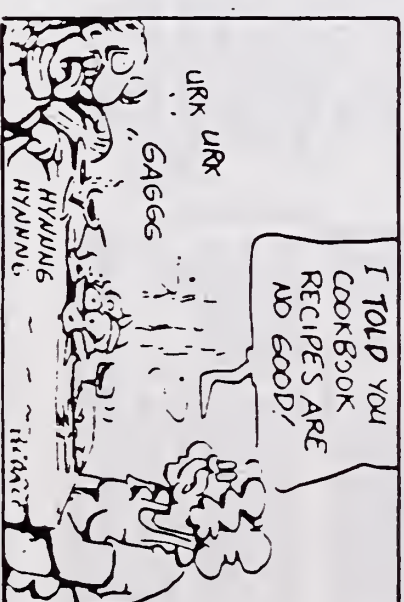 I TOLD YOU
COOKBOOK
RECIPES ARE
NO GOOD!
URK URK
GAGGG
HYNNNG
HYNNNG